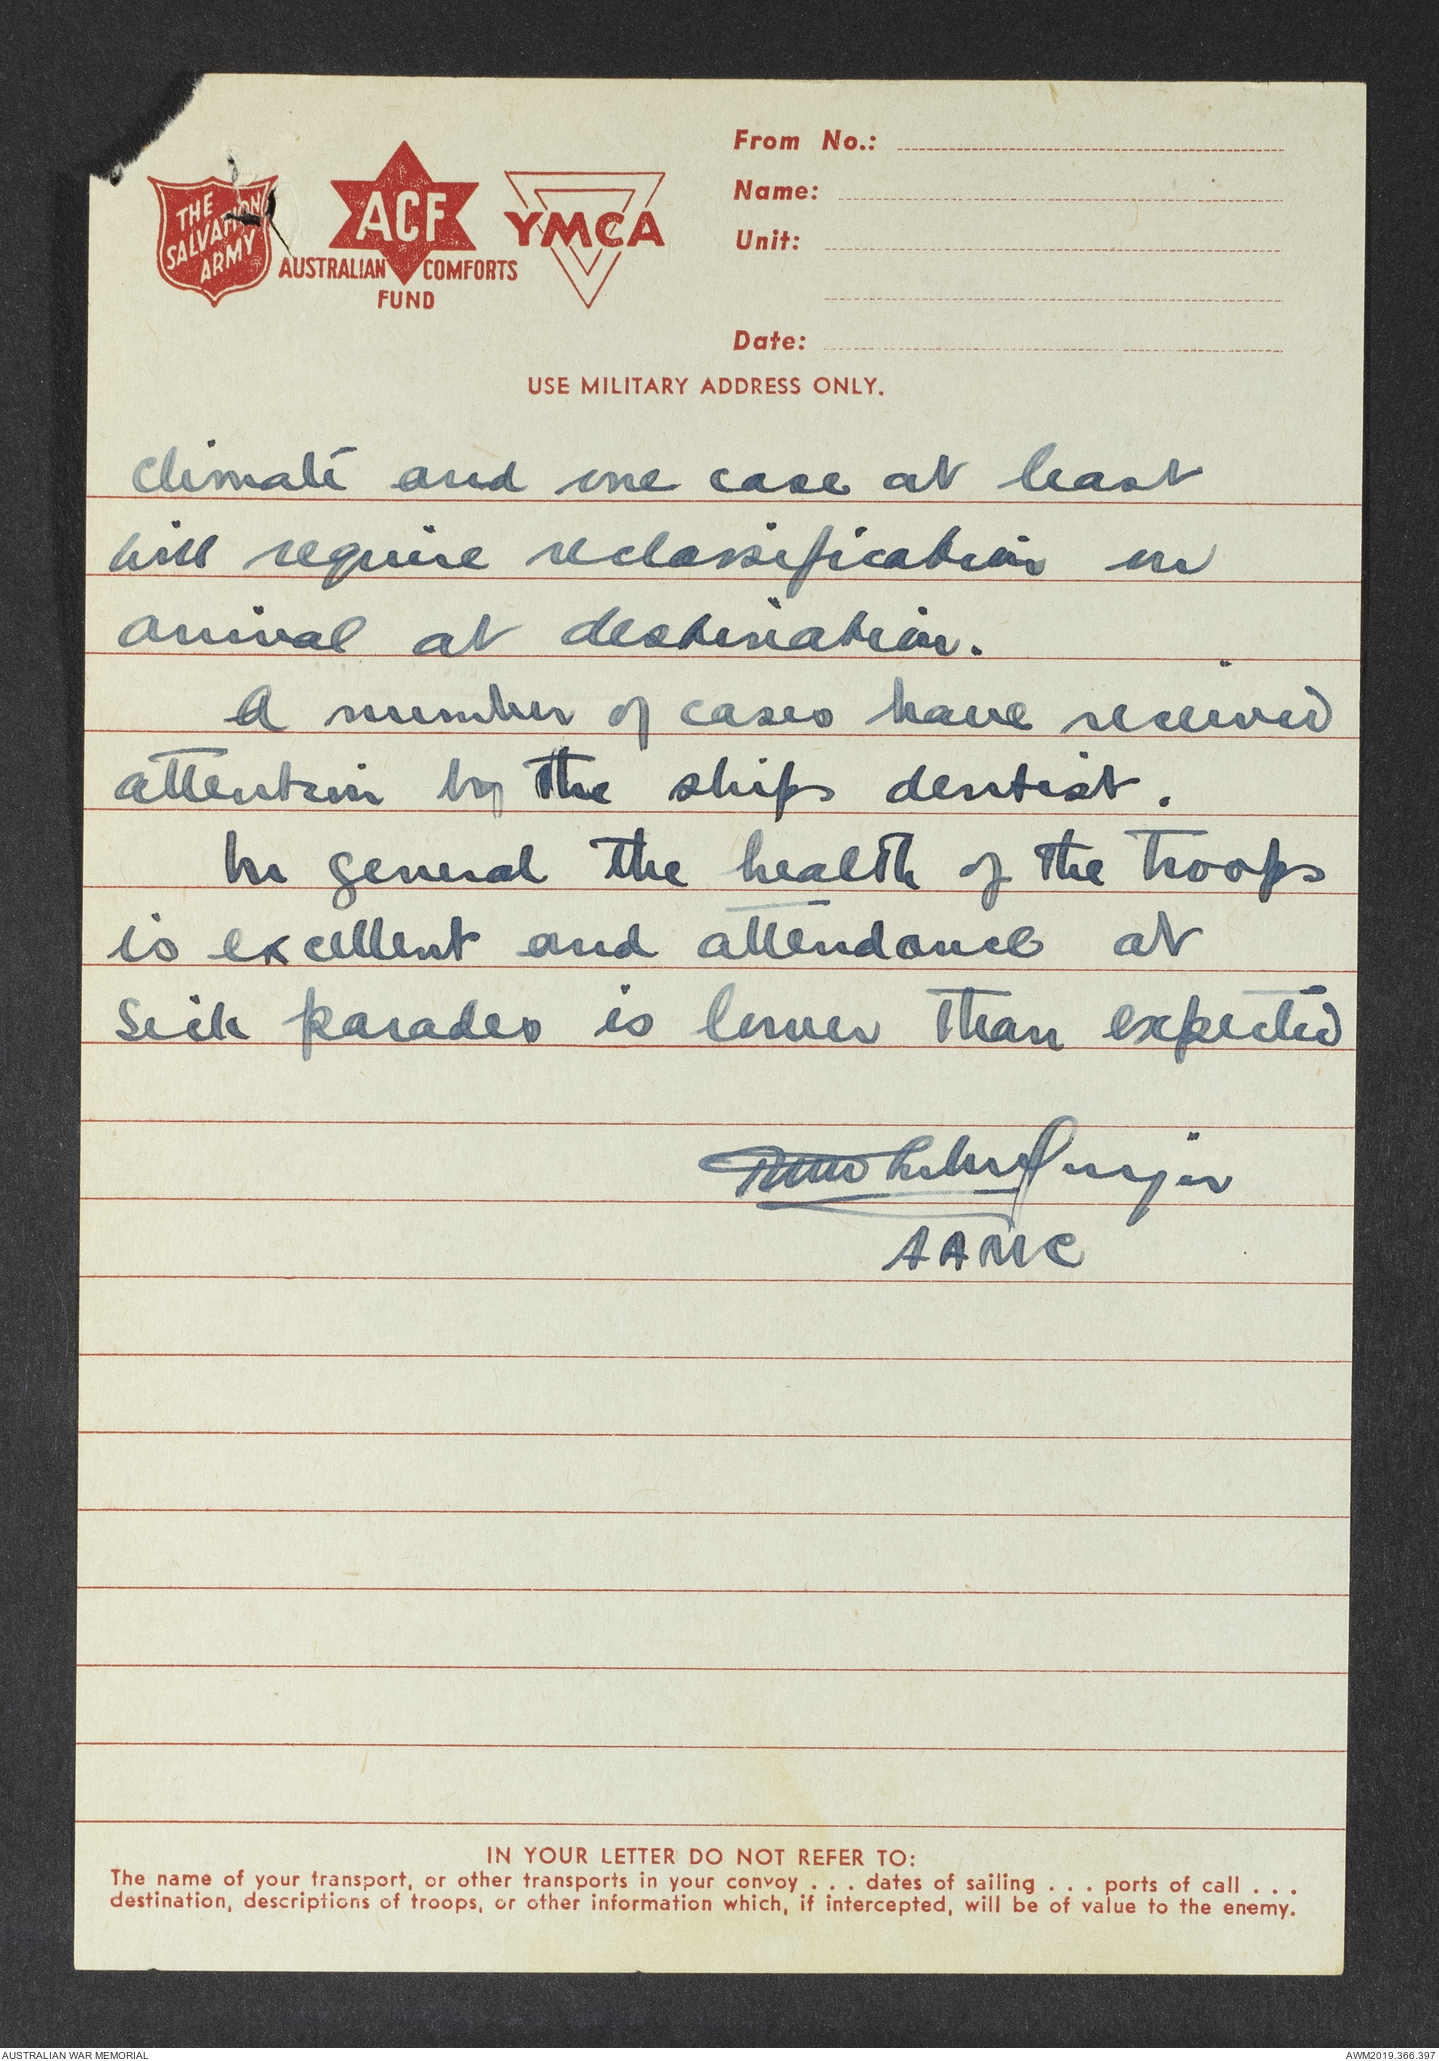 THE
SALVATION
ARMY
ACF
AUSTRALIAN COMFORTS
FUND
YMCA
From No.:
Name:
Unit:
Date:
USE MILITARY ADDRESS ONLY.
climate and one case at least
will require reclassification on
arrival at destination.
A number of cases have received
attention by the ships dentist.
In general the health of the troops
is excellent and attendance at
sick parades is lower than expected
major
AAMC
IN YOUR LETTER DO NOT REFER TO:
The name of your transport, or other transports in your convoy . . . dates of sailing . . . ports of call . . .
destination, descriptions of troops, or other information which, if intercepted, will be of value to the enemy.
AUSTRALIAN WAR MEMORIAL
AWM2019.366.397